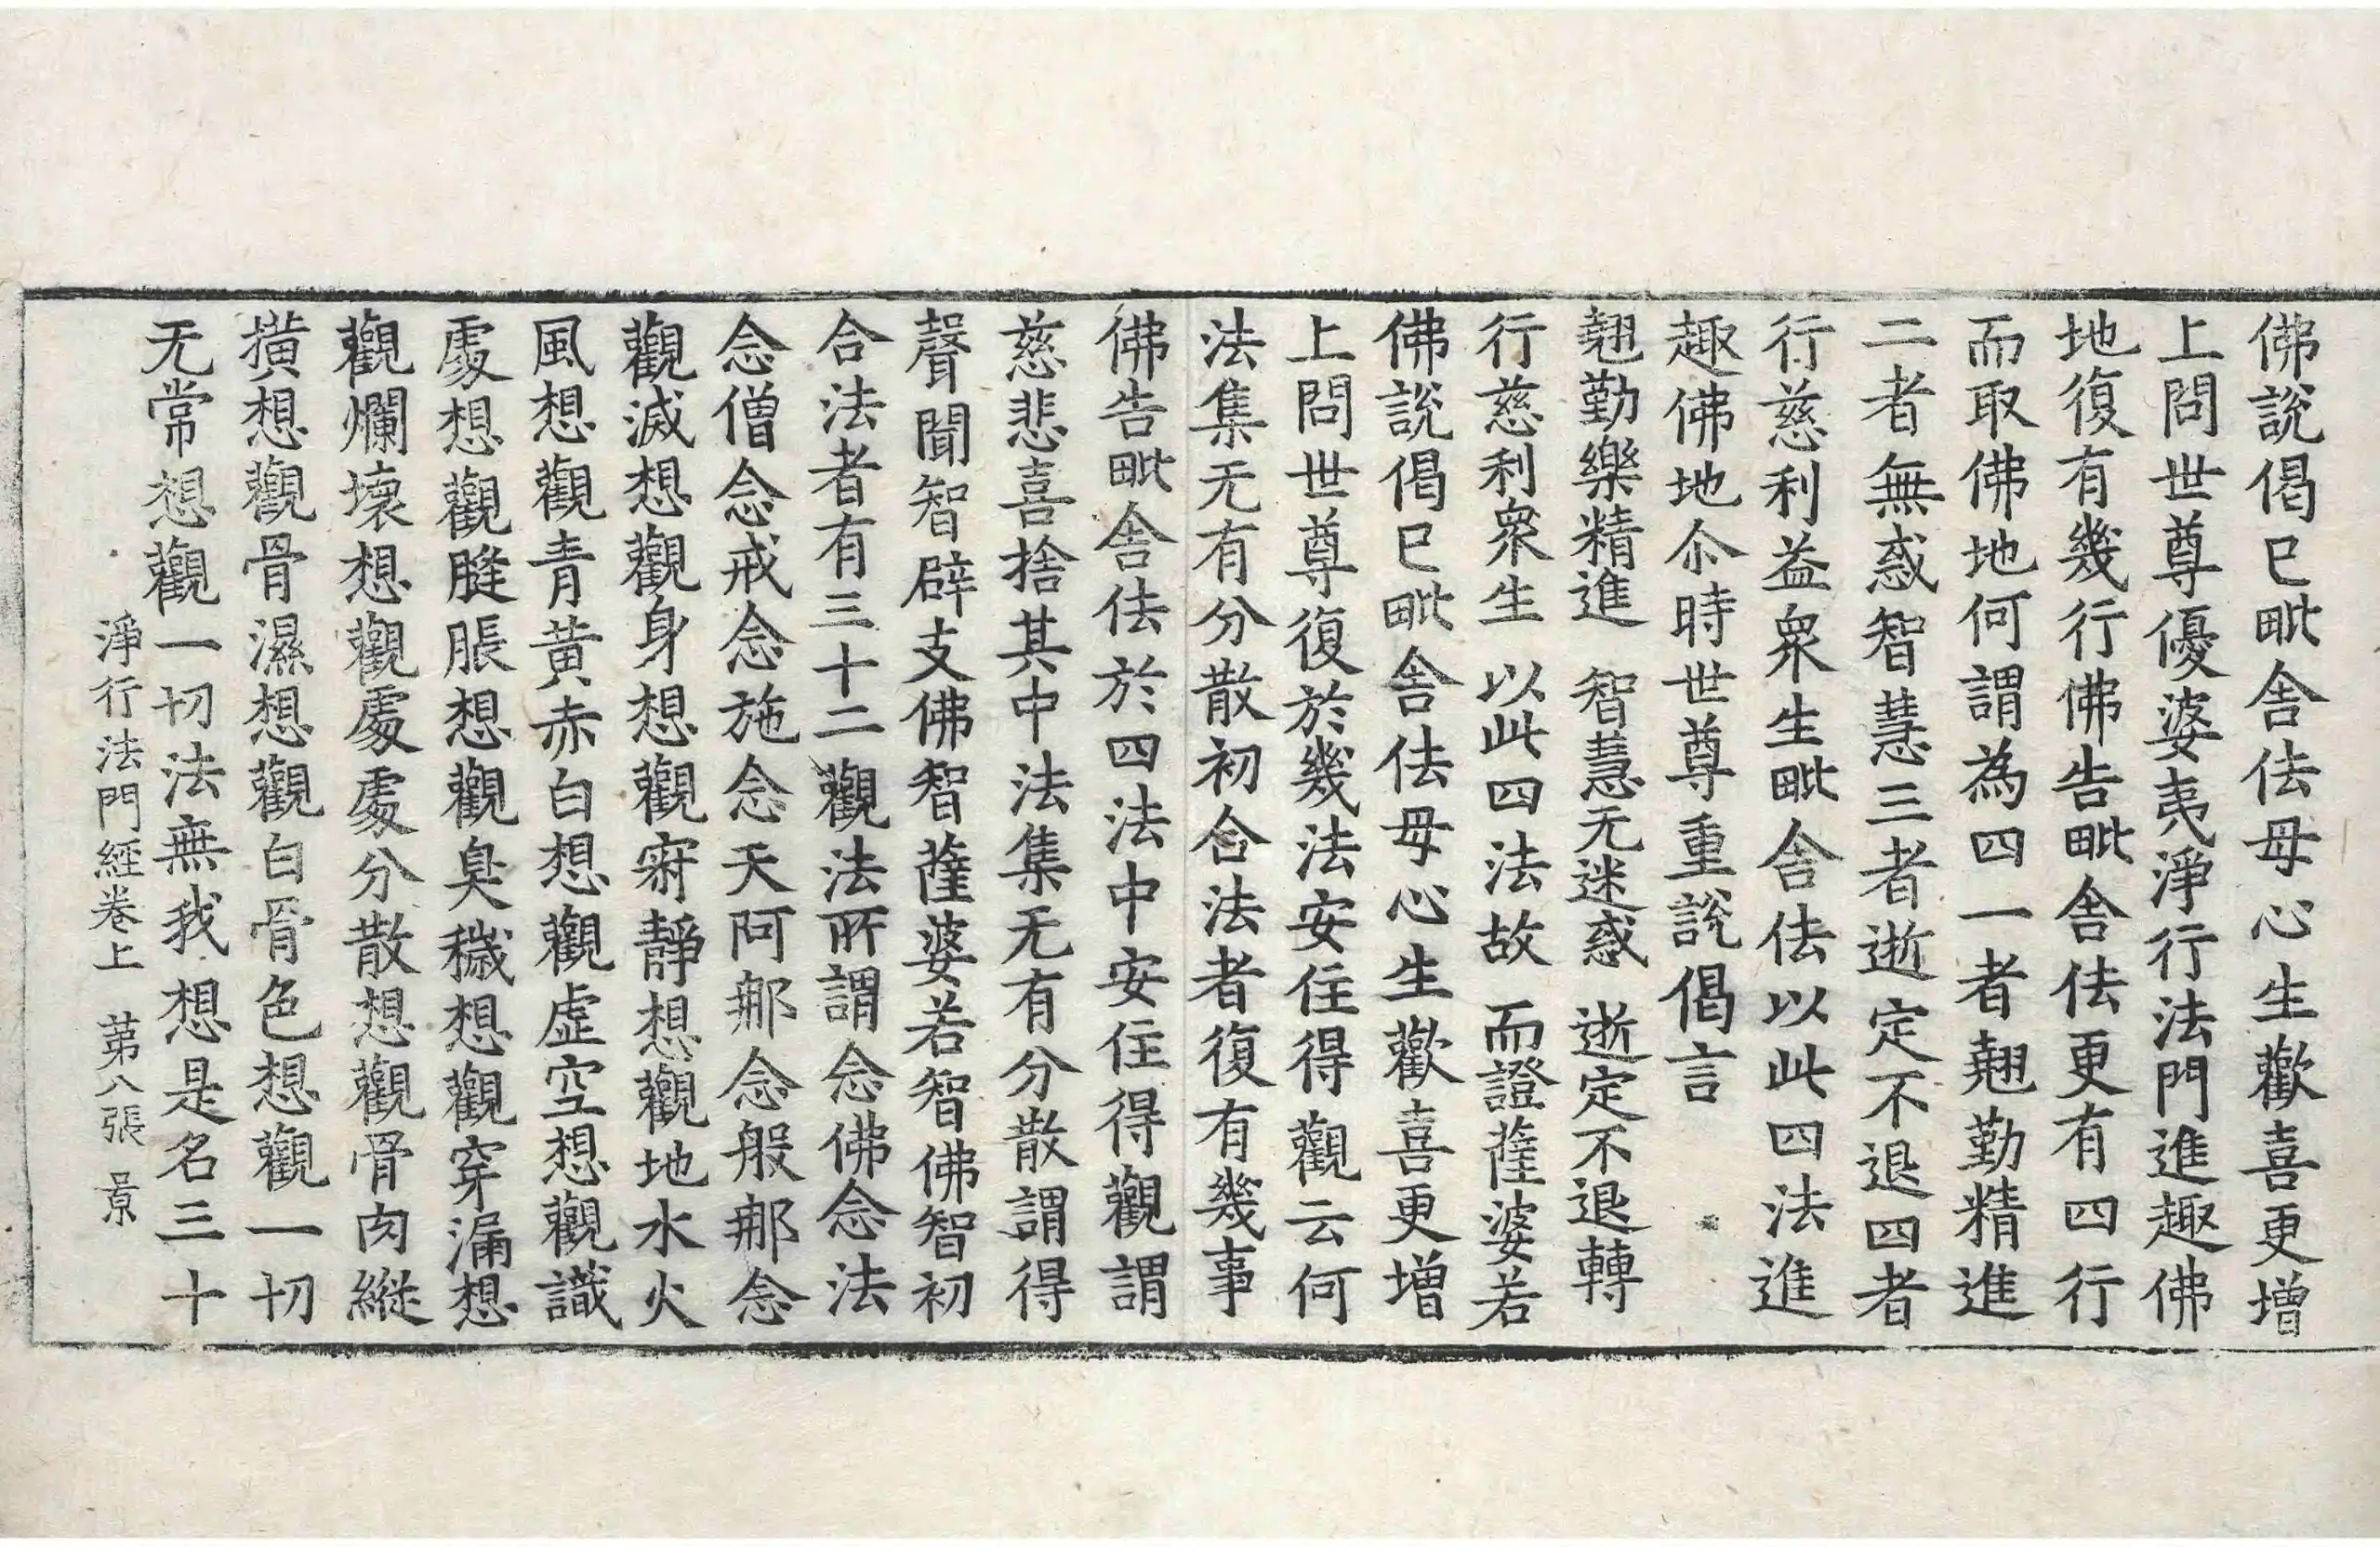 佛說偈已毗舍佉母心生歡喜更增
上問世尊優婆夷淨行法門進趣佛
地復有幾行佛告毗舍佉更有四行
而取佛地何謂為四一者翹勤精進
二者無惑智慧三者逝定不退四者
行慈利益衆生毗舍佉以此四法進
趣佛地尒時世尊重說偈言
翹勤樂精進 智慧无迷惑 逝定不退轉
行慈利衆生 以此四法故 而證薩婆若
佛說偈已毗舍佉母心生歡喜更增
上問世尊復於幾法安住得觀云何
法集无有分散初合法者復有幾事
佛告毗舍佉於四法中安住得觀謂
慈悲喜捨其中法集无有分散謂得
聲聞智辟支佛智薩婆若智佛智初
合法者有三十二觀法所謂念佛念法
念僧念戒念施念天阿那念般那念
觀滅想觀身想觀寂靜想觀地水火
風想觀青黃赤白想觀虛空想觀識
處想觀膖脹想觀臭穢想觀穿漏想
觀爛壞想觀處處分散想觀骨肉縱
撗想觀骨濕想觀白骨色想觀一切
无常想觀一切法無我想是名三十
淨行法門經卷上 苐八張 景